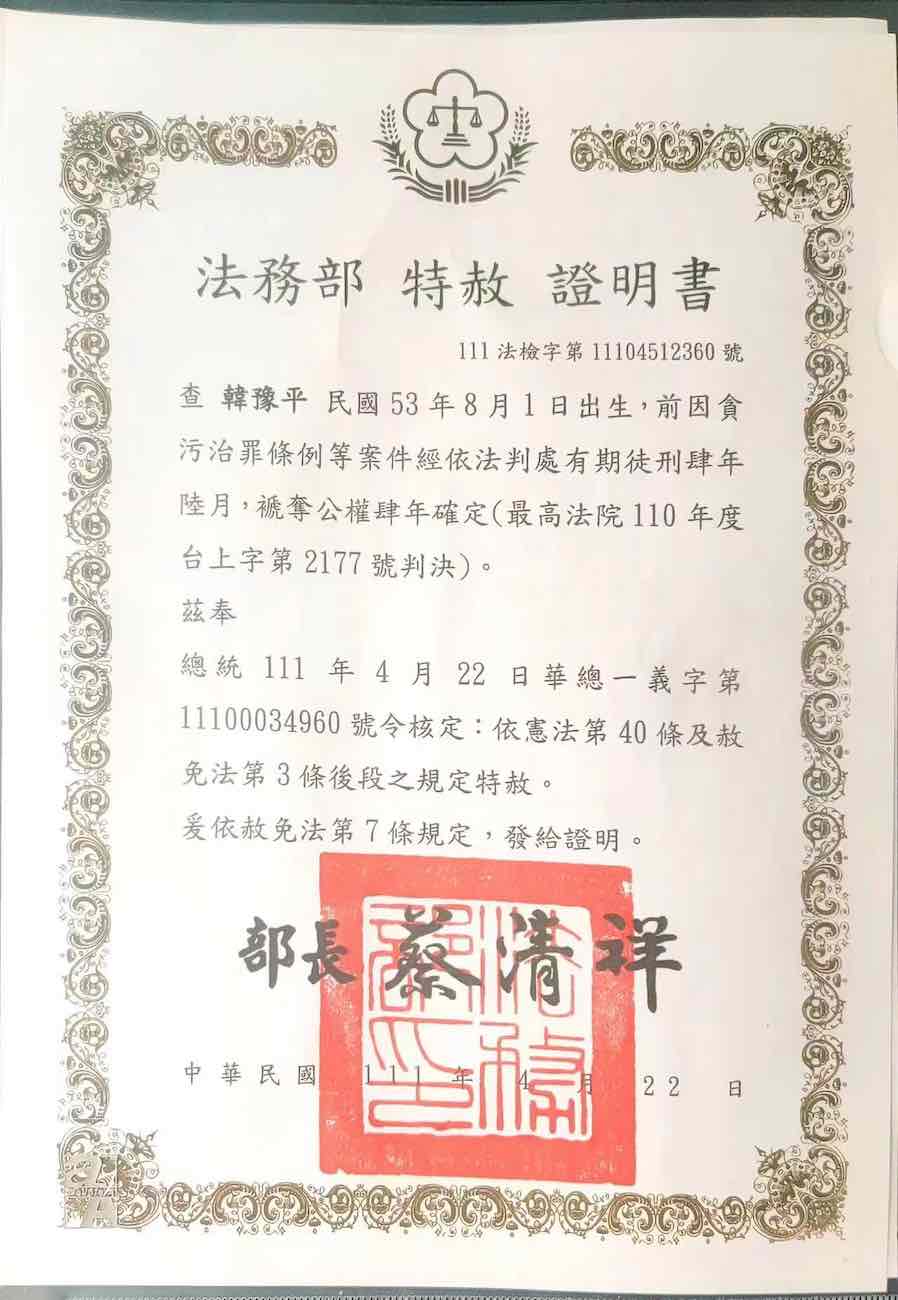 法務部 特赦 證明書
111 法檢字第 11104512360 號
查 韓豫平 民國 53 年 8 月 1 日出生，前因貪
污治罪條例等案件經依法判處有期徒刑肆年
陸月，褫奪公權肆年確定(最高法院 110 年度
台上字第 2177 號判決)。
茲奉
總統 111 年 4 月 22 日華總一義字第
11100034960 號令核定：依憲法第 40 條及赦
免法第 3 條後段之規定特赦。
爰依赦免法第 7 條規定，發給證明。
部長 蔡清祥
法務部印
中華民國 111 年 4 月 22 日